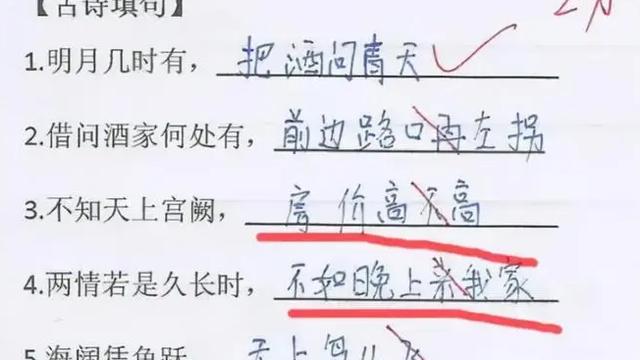 【古诗填句】
1.明月几时有，把酒问青天
2.借问酒家何处有，前边路口再左拐
3.不知天上宫阙，房价高不高
4.两情若是久长时，不如晚上来我家
5.海阔凭鱼跃 天上鸟儿